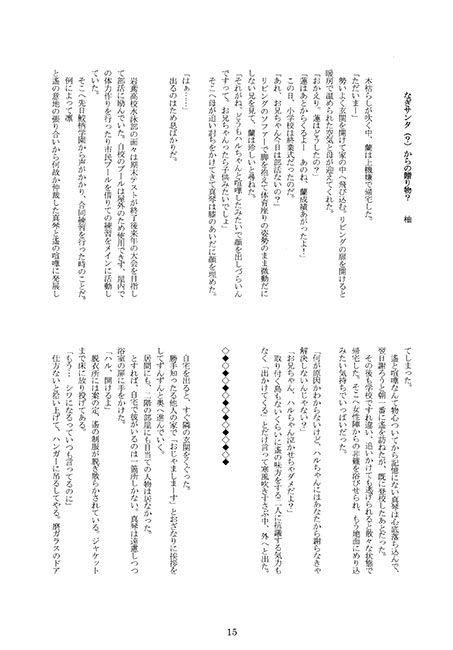 なぎサンタ（？）からの贈り物？　　柚
木枯らしが吹く中、蘭は上機嫌で帰宅した。
「ただいまー」
勢いよく玄関を開けて家の中へ飛び込む。リビングの扉を開けると
暖房で温められた空気と母が迎えてくれた。
「おかえり。蓮はどうしたの？」
「蓮はあとからくるよー　あのね、蘭成績あがったよ！」
この日、小学校は終業式だったのだ。
「あれ、お兄ちゃん今日は部活ないの？」
リビングのソファーで脚を抱えて体育座りの姿勢のまま微動だに
しない兄を見つけて、蘭は珍しいと尋ねた。
「それがね、どうもハルちゃんと喧嘩したみたいで顔を出しづらいん
ですって。お兄ちゃんったら子供みたいでしょ」
そこへ母が追い討ちをかけてきて真琴は膝のあいだに顔を埋めた。
「はぁ……」
出るのはため息ばかりだ。
岩鳶高校水泳部の面々は期末テストが終了後来年の大会を目指し
て部活に励んでいた。自校のプールは屋外のため使用できず、屋内で
の体力作りを行ったり市民プールを借りての練習をメインに活動し
ていた。
そこへ先日鮫柄学園から声がかかり、合同練習を行った時のことだ。
例によって凛
と遙の意地の張り合いから何故か仲裁した真琴と遙の喧嘩に発展し
てしまった。
遙と喧嘩なんて物心ついてから記憶にない真琴は心底落ち込んで、
翌日謝ろうと朝一番に遙を訪ねたが、既に登校したあとだった。
その後も学校ですれ違い、追いかけても逃げられると散々な状態で
帰宅した。そこへ女性陣からの非難を浴びせられ、もう地面にめり込
みたい気持ちでいっぱいだった。
「何が原因かわからないけど、ハルちゃんにはあなたから謝らなきゃ
解決しないんじゃない？」
「お兄ちゃん、ハルちゃん泣かせちゃダメだよ？」
取り付く島もないくらいに遙の味方をする二人に抗議する気力も
なく「出かけてくる」とだけ言って寒風吹きすさぶ中、外へと出た。
◇◆◇◆◇◆◇◆◇◆◇◆◇◆
自宅を出ると、すぐ隣の玄関をくぐった。
勝手知ったる他人の家で「おじゃましまーす」とおざなりに挨拶を
してずんずんと奥へ進んでいく。
居間にも、二階の部屋にも目当ての人物は居なかった。
とすれば、自宅で彼がいるのは一箇所しかない。真琴は遠慮しつつ
浴室の扉に手をかけた。
「ハル、開けるよ」
脱衣所には案の定、遙の制服が脱ぎ散らかされている。ジャケット
まで床に放り投げてある。
「もう…シワになるっていつも言ってるのに」
仕方ないと拾い上げて、ハンガーに吊るしてやる。磨ガラスのドア
15